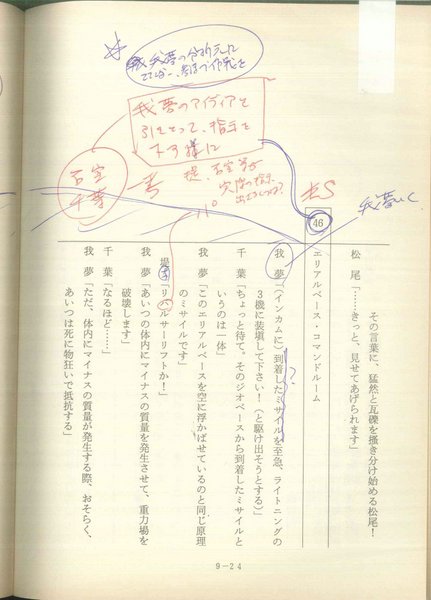 その言葉に、猛然と瓦礫を掻き分け始める松尾！
松尾「……きっと、見せてあげられます」
46
エリアルベース・コマンドルーム
我夢「（インカムに）到着したミサイルを至急、ライトニングの
3機に装填して下さい！（と駆け出そうとする）」
千葉「ちょっと待て。そのジオベースから到着したミサイルと
いうのは一体」
我夢「このエリアルベースを空に浮かばせているのと同じ原理
のミサイルです」
堤「リハルサーリフトか！」
我夢「あいつの体内にマイナスの質量を発生させて、重力場を
破壊します」
千葉「なるほど……」
我夢「ただ、体内にマイナスの質量が発生する際、おそらく、
あいつは死に物狂いで抵抗する」
我夢のアイディアを
引きとって、指示を
下す様に
石室
千葉
9-24